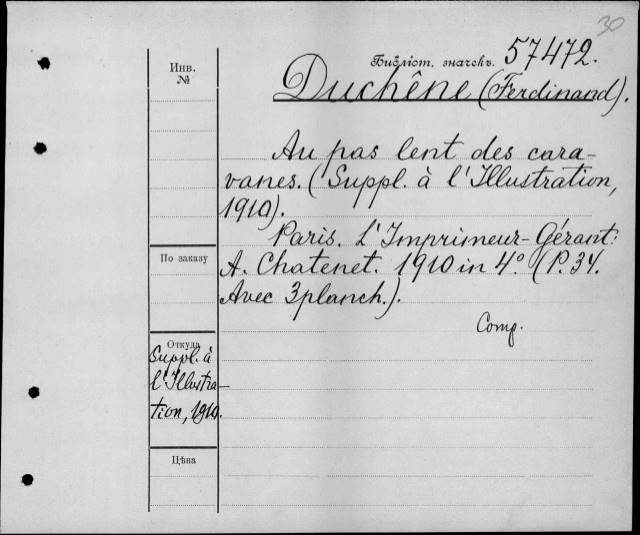 30
Библіот. значекъ. 57472.
Инв.
№
Duchêne (Ferdinand).
Au pas lent des cara-
vanes. (Suppl. à l'Illustration,
1910).
Paris. L'Imprimeur-Gérant:
По заказу
A. Chatenet. 1910 in 4° (P. 34.
Avec 3 planch.).
Comp.
Откуда
Suppl. à
l'Illustra-
tion, 1910.
Цѣна